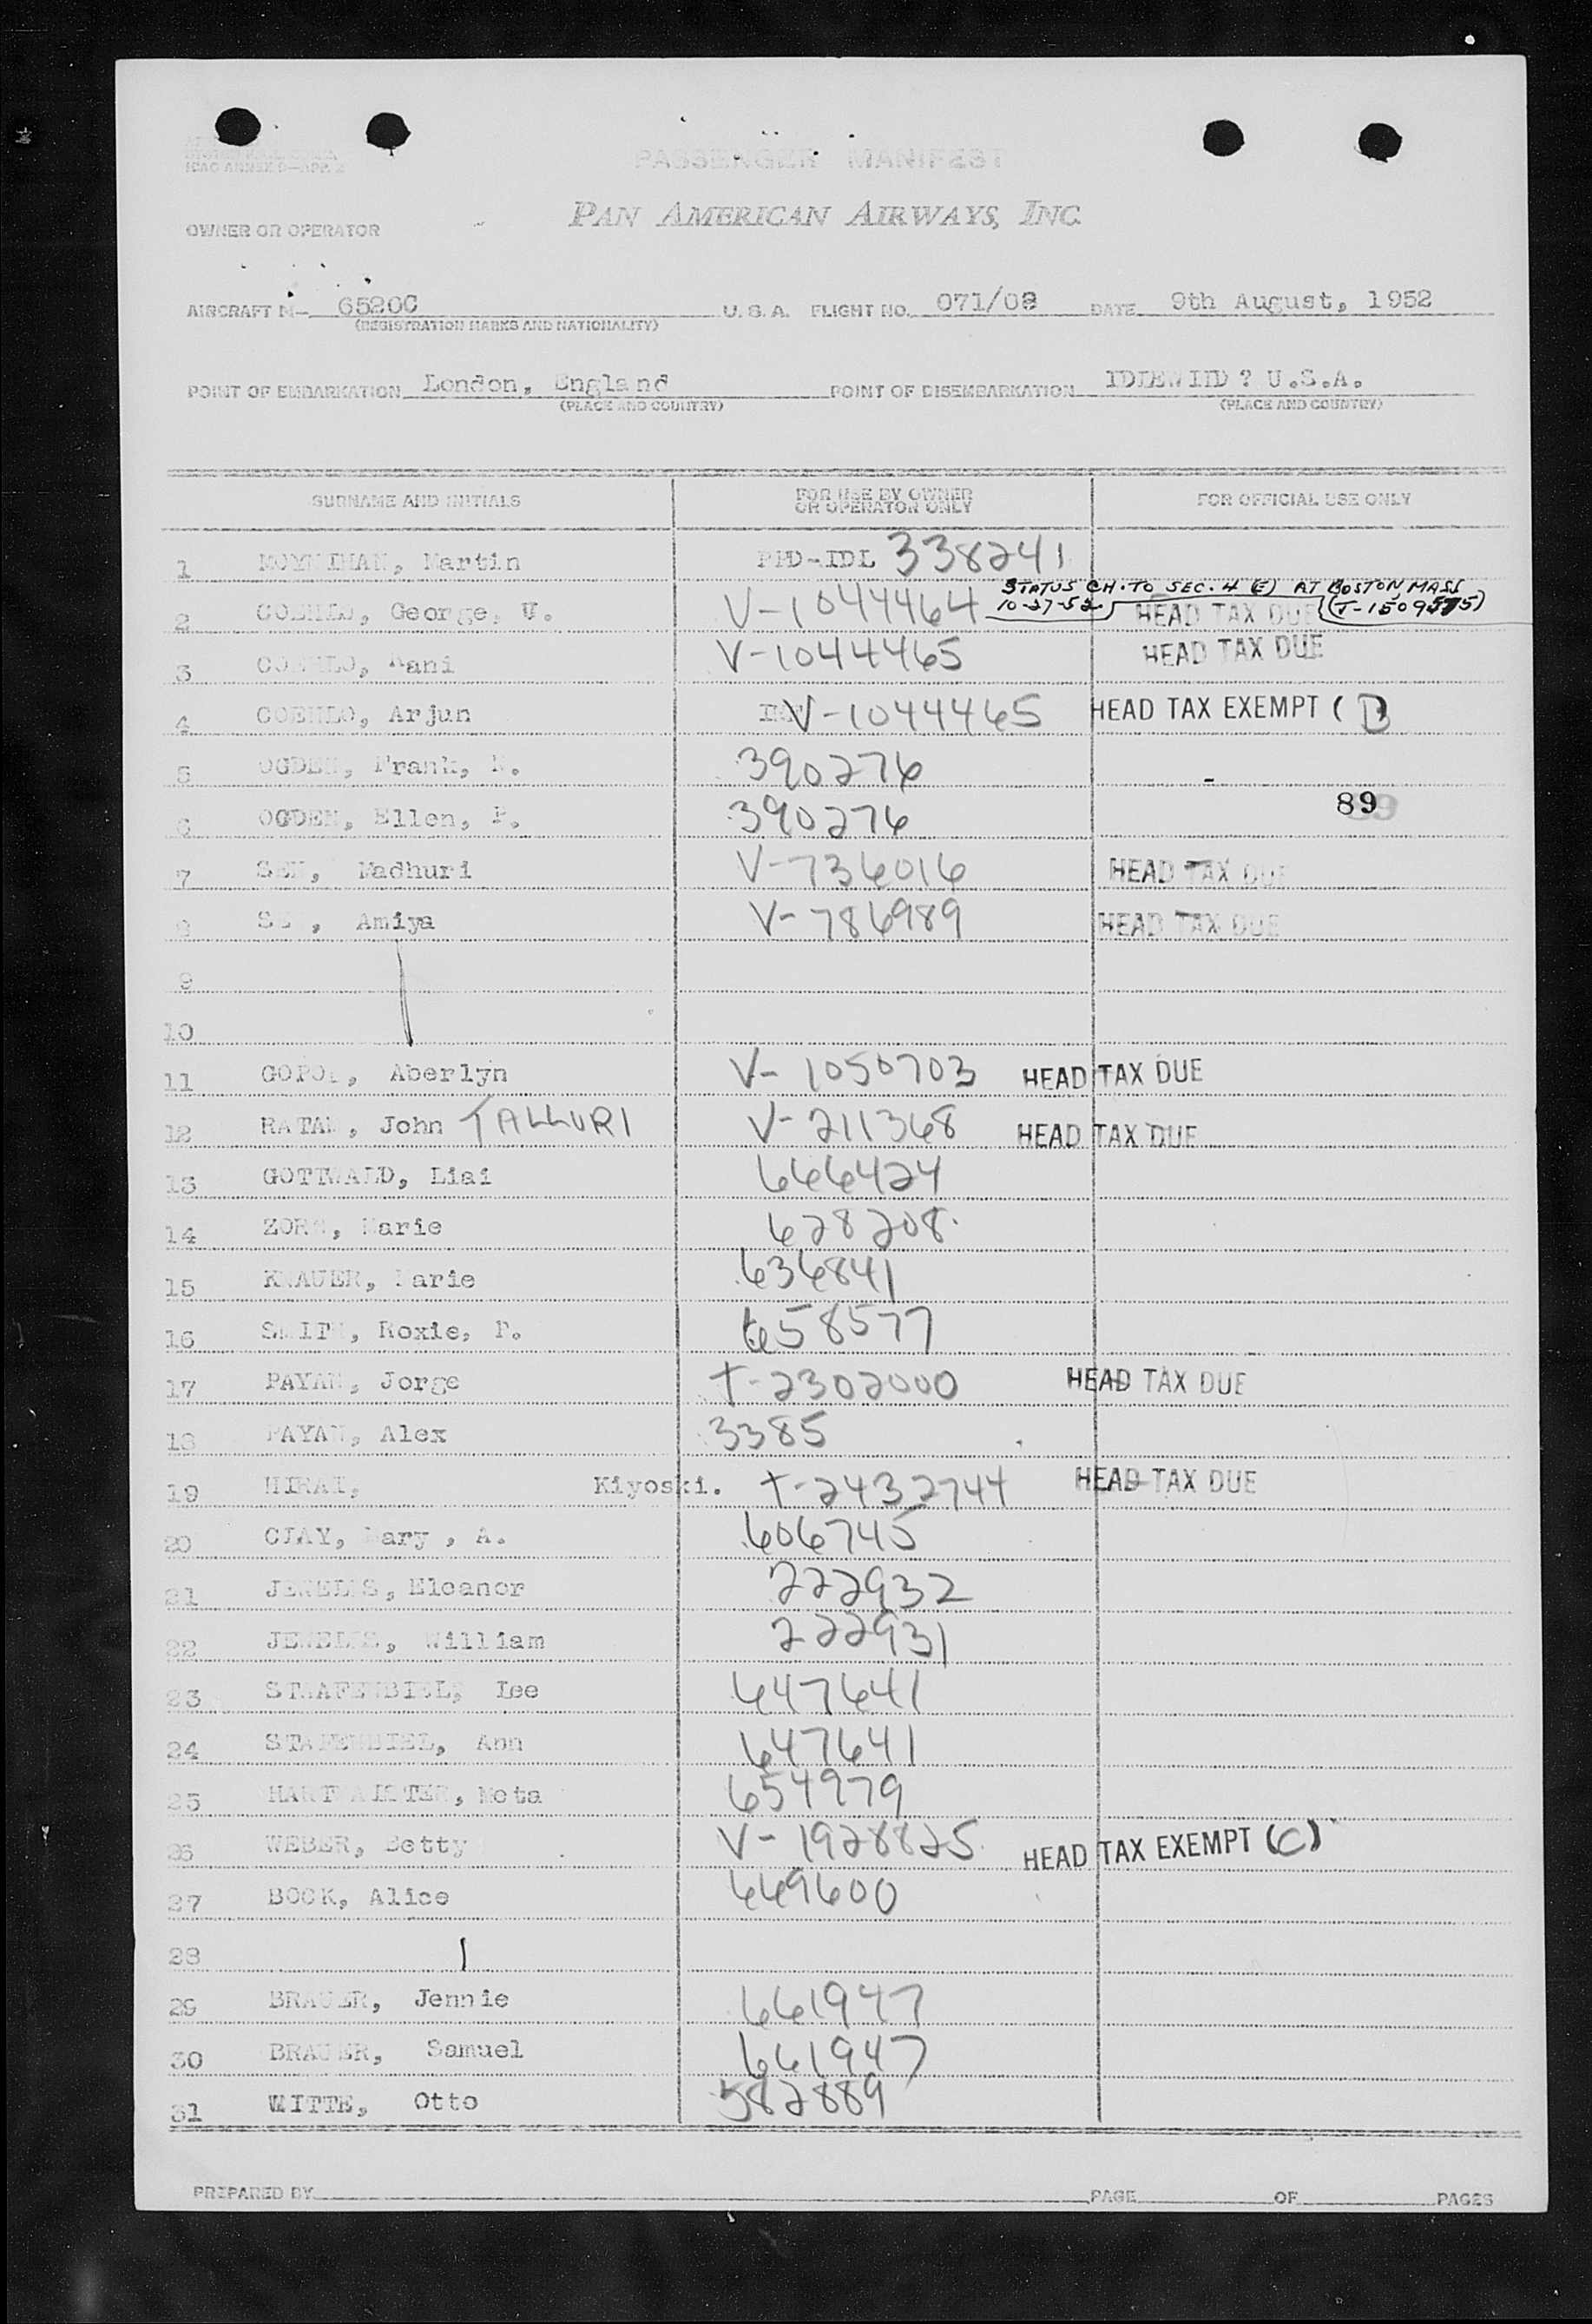 ICAO ANNEX 9—APP. 2
PASSENGER MANIFEST
OWNER OR OPERATOR PAN AMERICAN AIRWAYS, INC.
AIRCRAFT N— 6520C U. S. A. FLIGHT NO. 071/08 DATE 9th August, 1952
(REGISTRATION MARKS AND NATIONALITY)
POINT OF EMBARKATION London, England POINT OF DISEMBARKATION IDLEWIID ? U.S.A.
(PLACE AND COUNTRY) (PLACE AND COUNTRY)
SURNAME AND INITIALS FOR USE BY OWNER OR OPERATOR ONLY FOR OFFICIAL USE ONLY
1 MOYNIHAN, Martin PPD-IDL 338241
STATUS CH. TO SEC. 4 (E) AT BOSTON MASS
2 COEHLO, George, V. V-1044464 10-27-52 HEAD TAX DUE
3 COEHLO, Rani V-1044465 HEAD TAX DUE
4 COEHLO, Arjun V-1044465 HEAD TAX EXEMPT (B)
5 OGDEN, Frank, 390276
6 OGDEN, Ellen, P. 390276 89
7 SEN, Madhuri V-736016 HEAD TAX DUE
8 Amiya V-786989 HEAD TAX DUE
9
10
11 Aberlyn V-1050703 HEAD TAX DUE
12 RATAN, John TALLURI V-211368 HEAD TAX DUE
13 GOTTWALD, Liai 666424
14 ZORN, Marie 628208
15 KNAUER, Marie 636841
16 SMITH, Roxie, P. 658577
17 PAYAN, Jorge T-2302000 HEAD TAX DUE
18 PAYAN, Alex 3385
19 HIRAI, Kiyoski. T-2432744 HEAD TAX DUE
20 CIAY, Mary , A. 606745
21 Eleanor 222932
22 William 222931
23 Lee 647641
24 Ann 647641
25 Meta 654979
26 WEBER, Betty V-1928825 HEAD TAX EXEMPT (C)
27 BOCK, Alice 669600
28
29 BRAUER, Jennie 661947
30 BRAUER, Samuel 661947
31 WITTE, Otto 582889
PREPARED BY PAGE OF PAGES